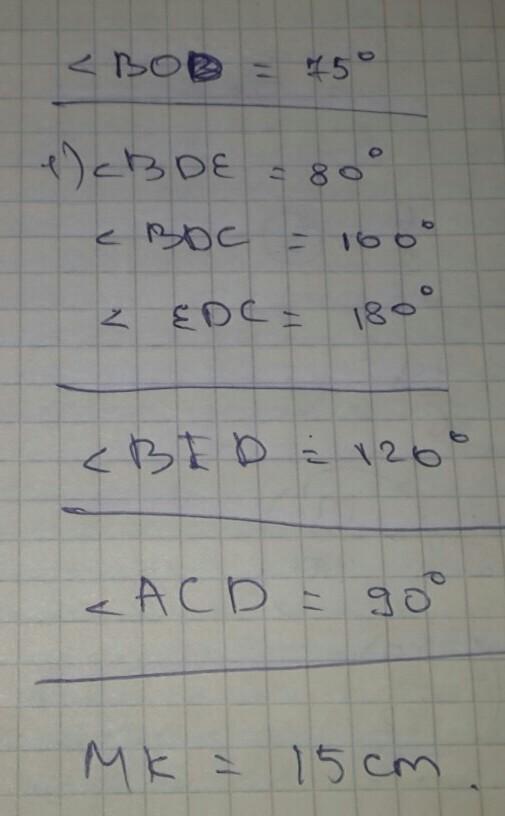 < BOB = 75°
1) < BDE = 80°
< BDC = 100°
< EDC = 180°
< BID = 120°
< ACD = 90°
MK = 15 cm.